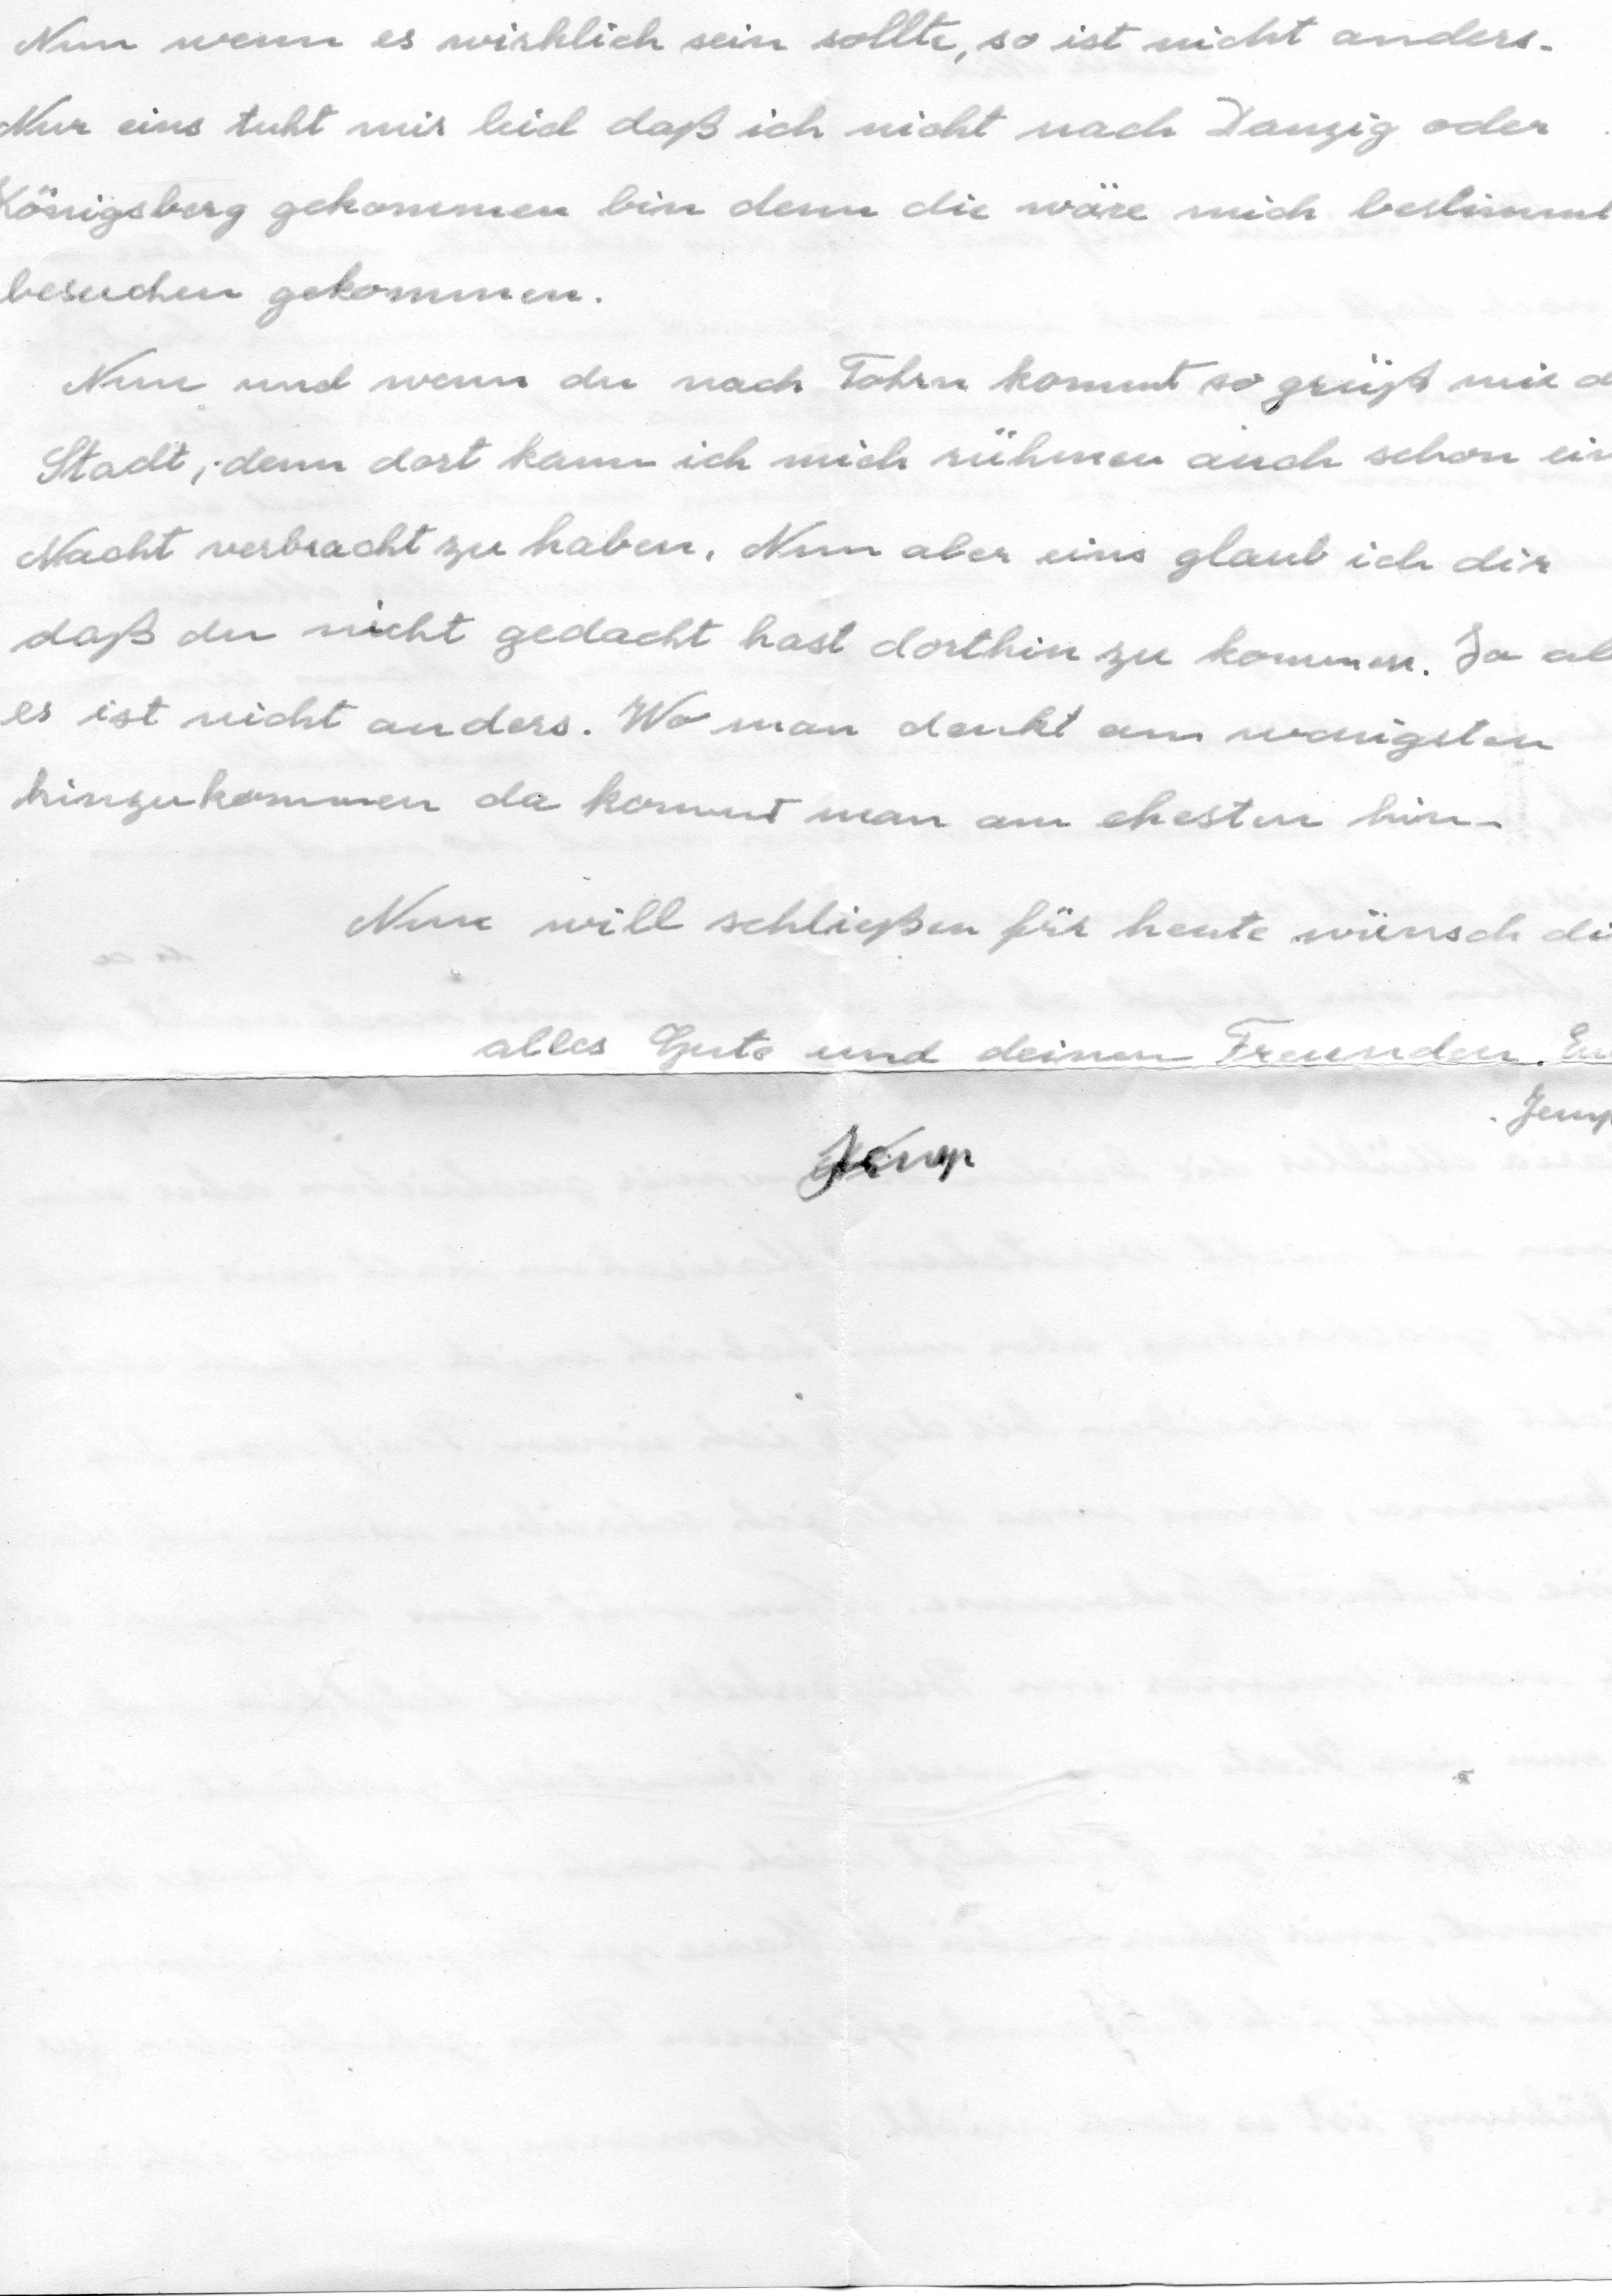 Nun wenn es wirklich sein sollte, so ist nicht anders.
Nur eins tuht mir leid daß ich nicht nach Danzig oder
Königsberg gekommen bin denn die wäre mich bestimmt
besuchen gekommen.
Nun und wenn du nach Tohrn kommt so grüß mir d
Stadt, denn dort kann ich mich rühmen auch schon ein
Nacht verbracht zu haben. Nun aber eins glaub ich dir
daß du nicht gedacht hast dorthin zu kommen. Ja al
es ist nicht anders. Wo man denkt am wenigsten
hinzukommen da kommt man am ehesten hin.
Nun will schließen für heute wünsch di
alles Gute und deinen Freunden. Eu
Jemp
Jemp